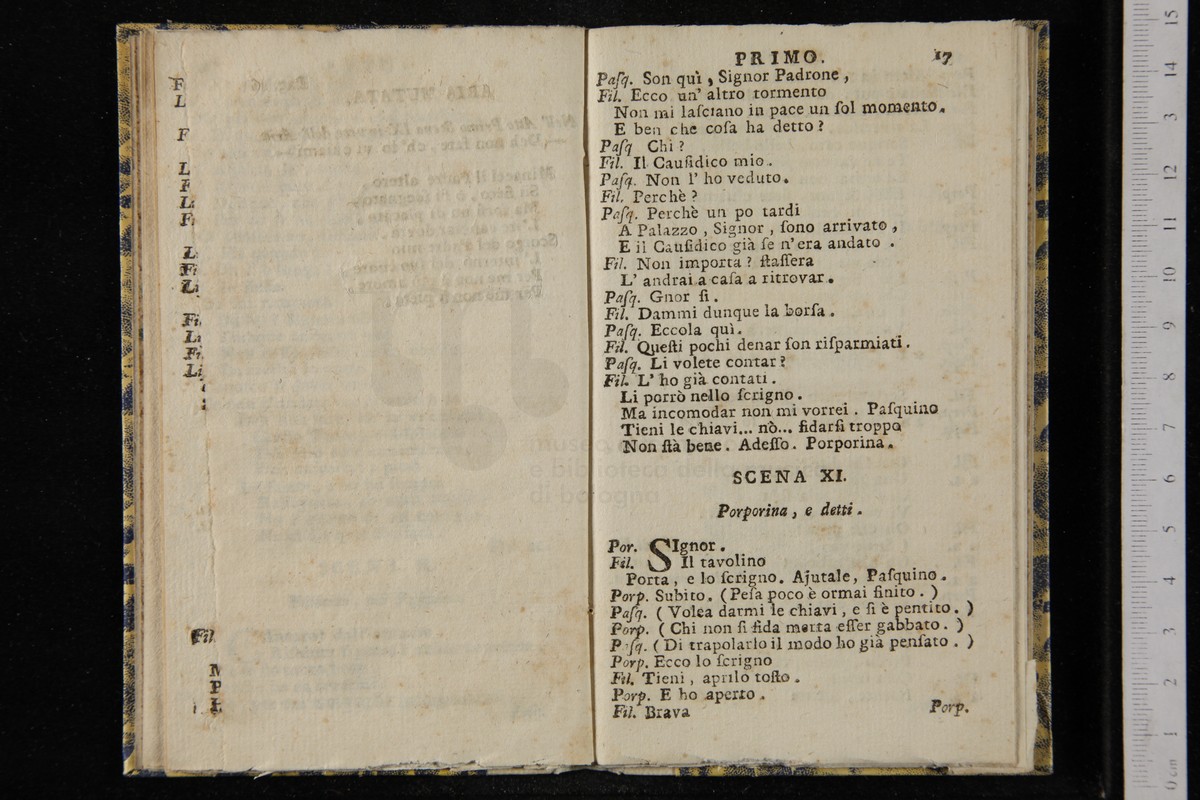 F
L
F
L
F
L
F
L
Fi
Li
Fi
Li
Fi
Li
Fil
M
P
PRIMO. 17
Paſq. Son quì , Signor Padrone ,
Fil. Ecco un' altro tormento
Non mi laſciano in pace un ſol momento.
E ben che coſa ha detto ?
Paſq Chi ?
Fil. Il Cauſidico mio.
Paſq. Non l' ho veduto.
Fil. Perchè ?
Paſq. Perchè un po tardi
A Palazzo , Signor , ſono arrivato ,
E il Cauſidico già ſe n' era andato .
Fil. Non importa ? ſtaſſera
L' andrai a caſa a ritrovar.
Paſq. Gnor ſi .
Fil. Dammi dunque la borſa .
Paſq. Eccola quì.
Fil. Queſti pochi denar ſon riſparmiati .
Paſq. Li volete contar ?
Fil. L' ho già contati .
Li porrò nello ſcrigno .
Ma incomodar non mi vorrei . Paſquino
Tieni le chiavi... nò... fidarſi troppo
Non ſtà bene . Adeſſo . Porporina.
SCENA XI.
Porporina , e detti .
Por. SIgnor .
Fil. Il tavolino
Porta , e lo ſcrigno. Ajutale, Paſquino .
Porp. Subito. ( Peſa poco è ormai finito . )
Paſq. ( Volea darmi le chiavi , e ſi è pentito . )
Porp. ( Chi non ſi fida merta eſſer gabbato . )
Paſq. ( Di trapolarlo il modo ho già penſato . )
Porp. Ecco lo ſcrigno
Fil. Tieni , aprilo toſto .
Porp. E ho aperto .
Fil. Brava
Porp.
museo
e biblioteca della
di bologna